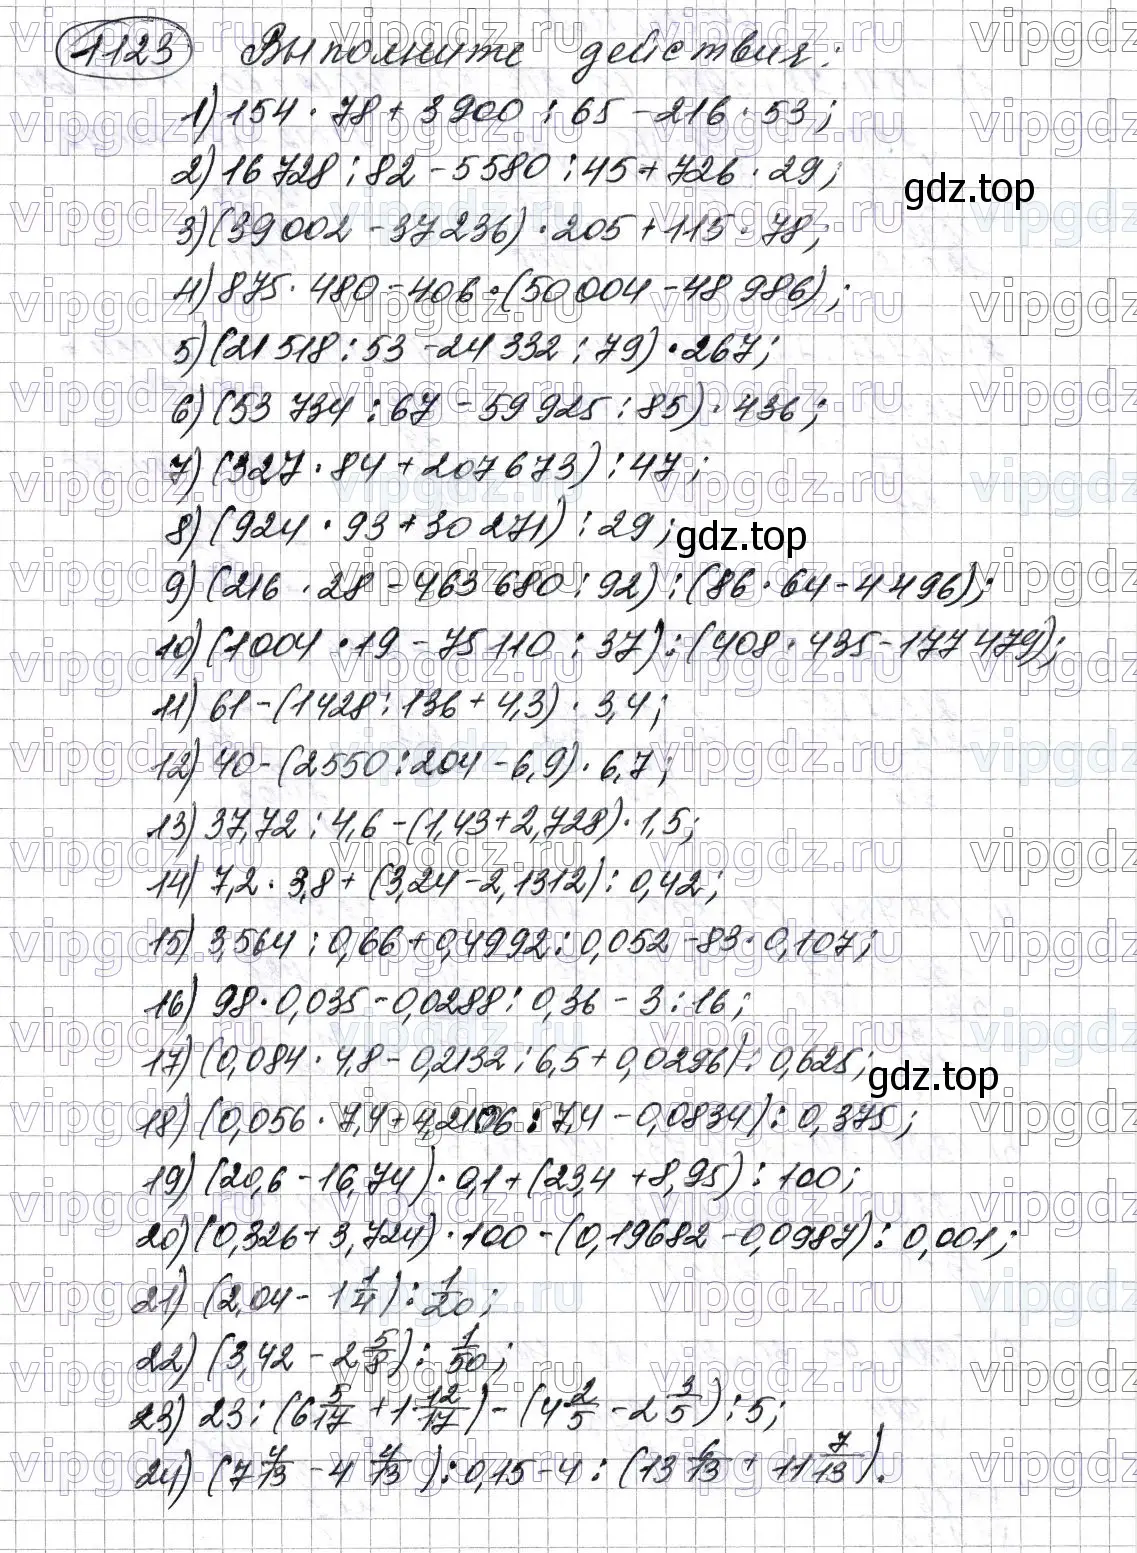 1123 Выполните действия:
1) 154 · 78 + 3900 : 65 - 216 · 53;
2) 16 728 : 82 - 5580 : 45 + 726 · 29;
gdz.top
3) (39 002 - 37 236) · 205 + 115 · 78;
4) 875 · 480 - 406 · (50 004 - 48 986);
5) (21 518 : 53 - 24 332 : 79) · 267;
6) (53 734 : 67 - 59 925 : 85) · 436;
7) (327 · 84 + 207 673) : 47;
8) (924 · 93 + 30 271) : 29;
gdz.top
9) (216 · 28 - 463 680 : 92) : (86 · 64 - 4 496);
10) (1004 · 19 - 75 110 : 37) : (408 · 435 - 177 479);
11) 61 - (1428 : 136 + 4,3) · 3,4;
12) 40 - (2550 : 204 - 6,9) · 6,7;
13) 37,72 : 4,6 - (1,43 + 2,728) · 1,5;
14) 7,2 · 3,8 + (3,24 - 2,1312) : 0,42;
15) 3,564 : 0,66 + 0,4992 : 0,052 - 83 · 0,107;
16) 98 · 0,035 - 0,0288 : 0,36 - 3 : 16;
17) (0,084 · 4,8 - 0,2132 : 6,5 + 0,0296) : 0,625;
gdz.top
18) (0,056 · 7,4 + 4,2106 : 7,4 - 0,0834) : 0,375;
19) (20,6 - 16,74) · 0,1 + (23,4 + 8,95) : 100;
20) (0,326 + 3,724) · 100 - (0,19682 - 0,0987) : 0,001;
21) (2,04 - 1 1/4) : 1/20;
22) (3,42 - 2 5/8) : 1/50;
23) 23 : (6 5/17 + 1 12/17) - (4 2/5 - 2 3/5) : 5;
24) (7 4/13 - 4 4/13) : 0,15 - 4 : (13 6/13 + 11 7/13).